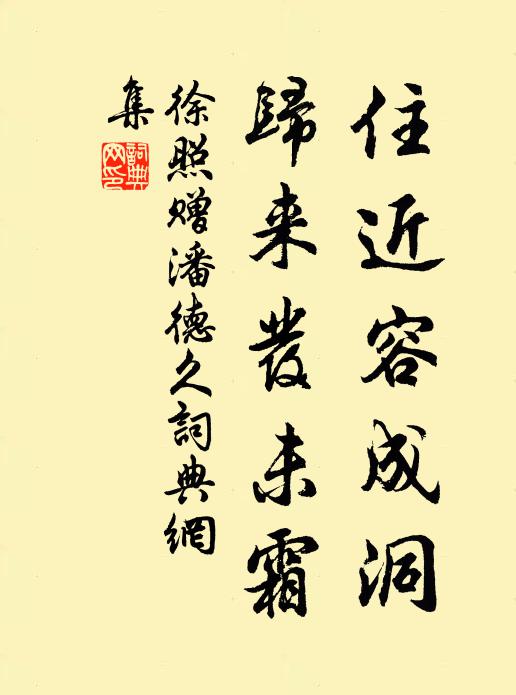 住近容成洞
歸来發未霜
徐照贈潘德久詞典網
集
詞典
网印